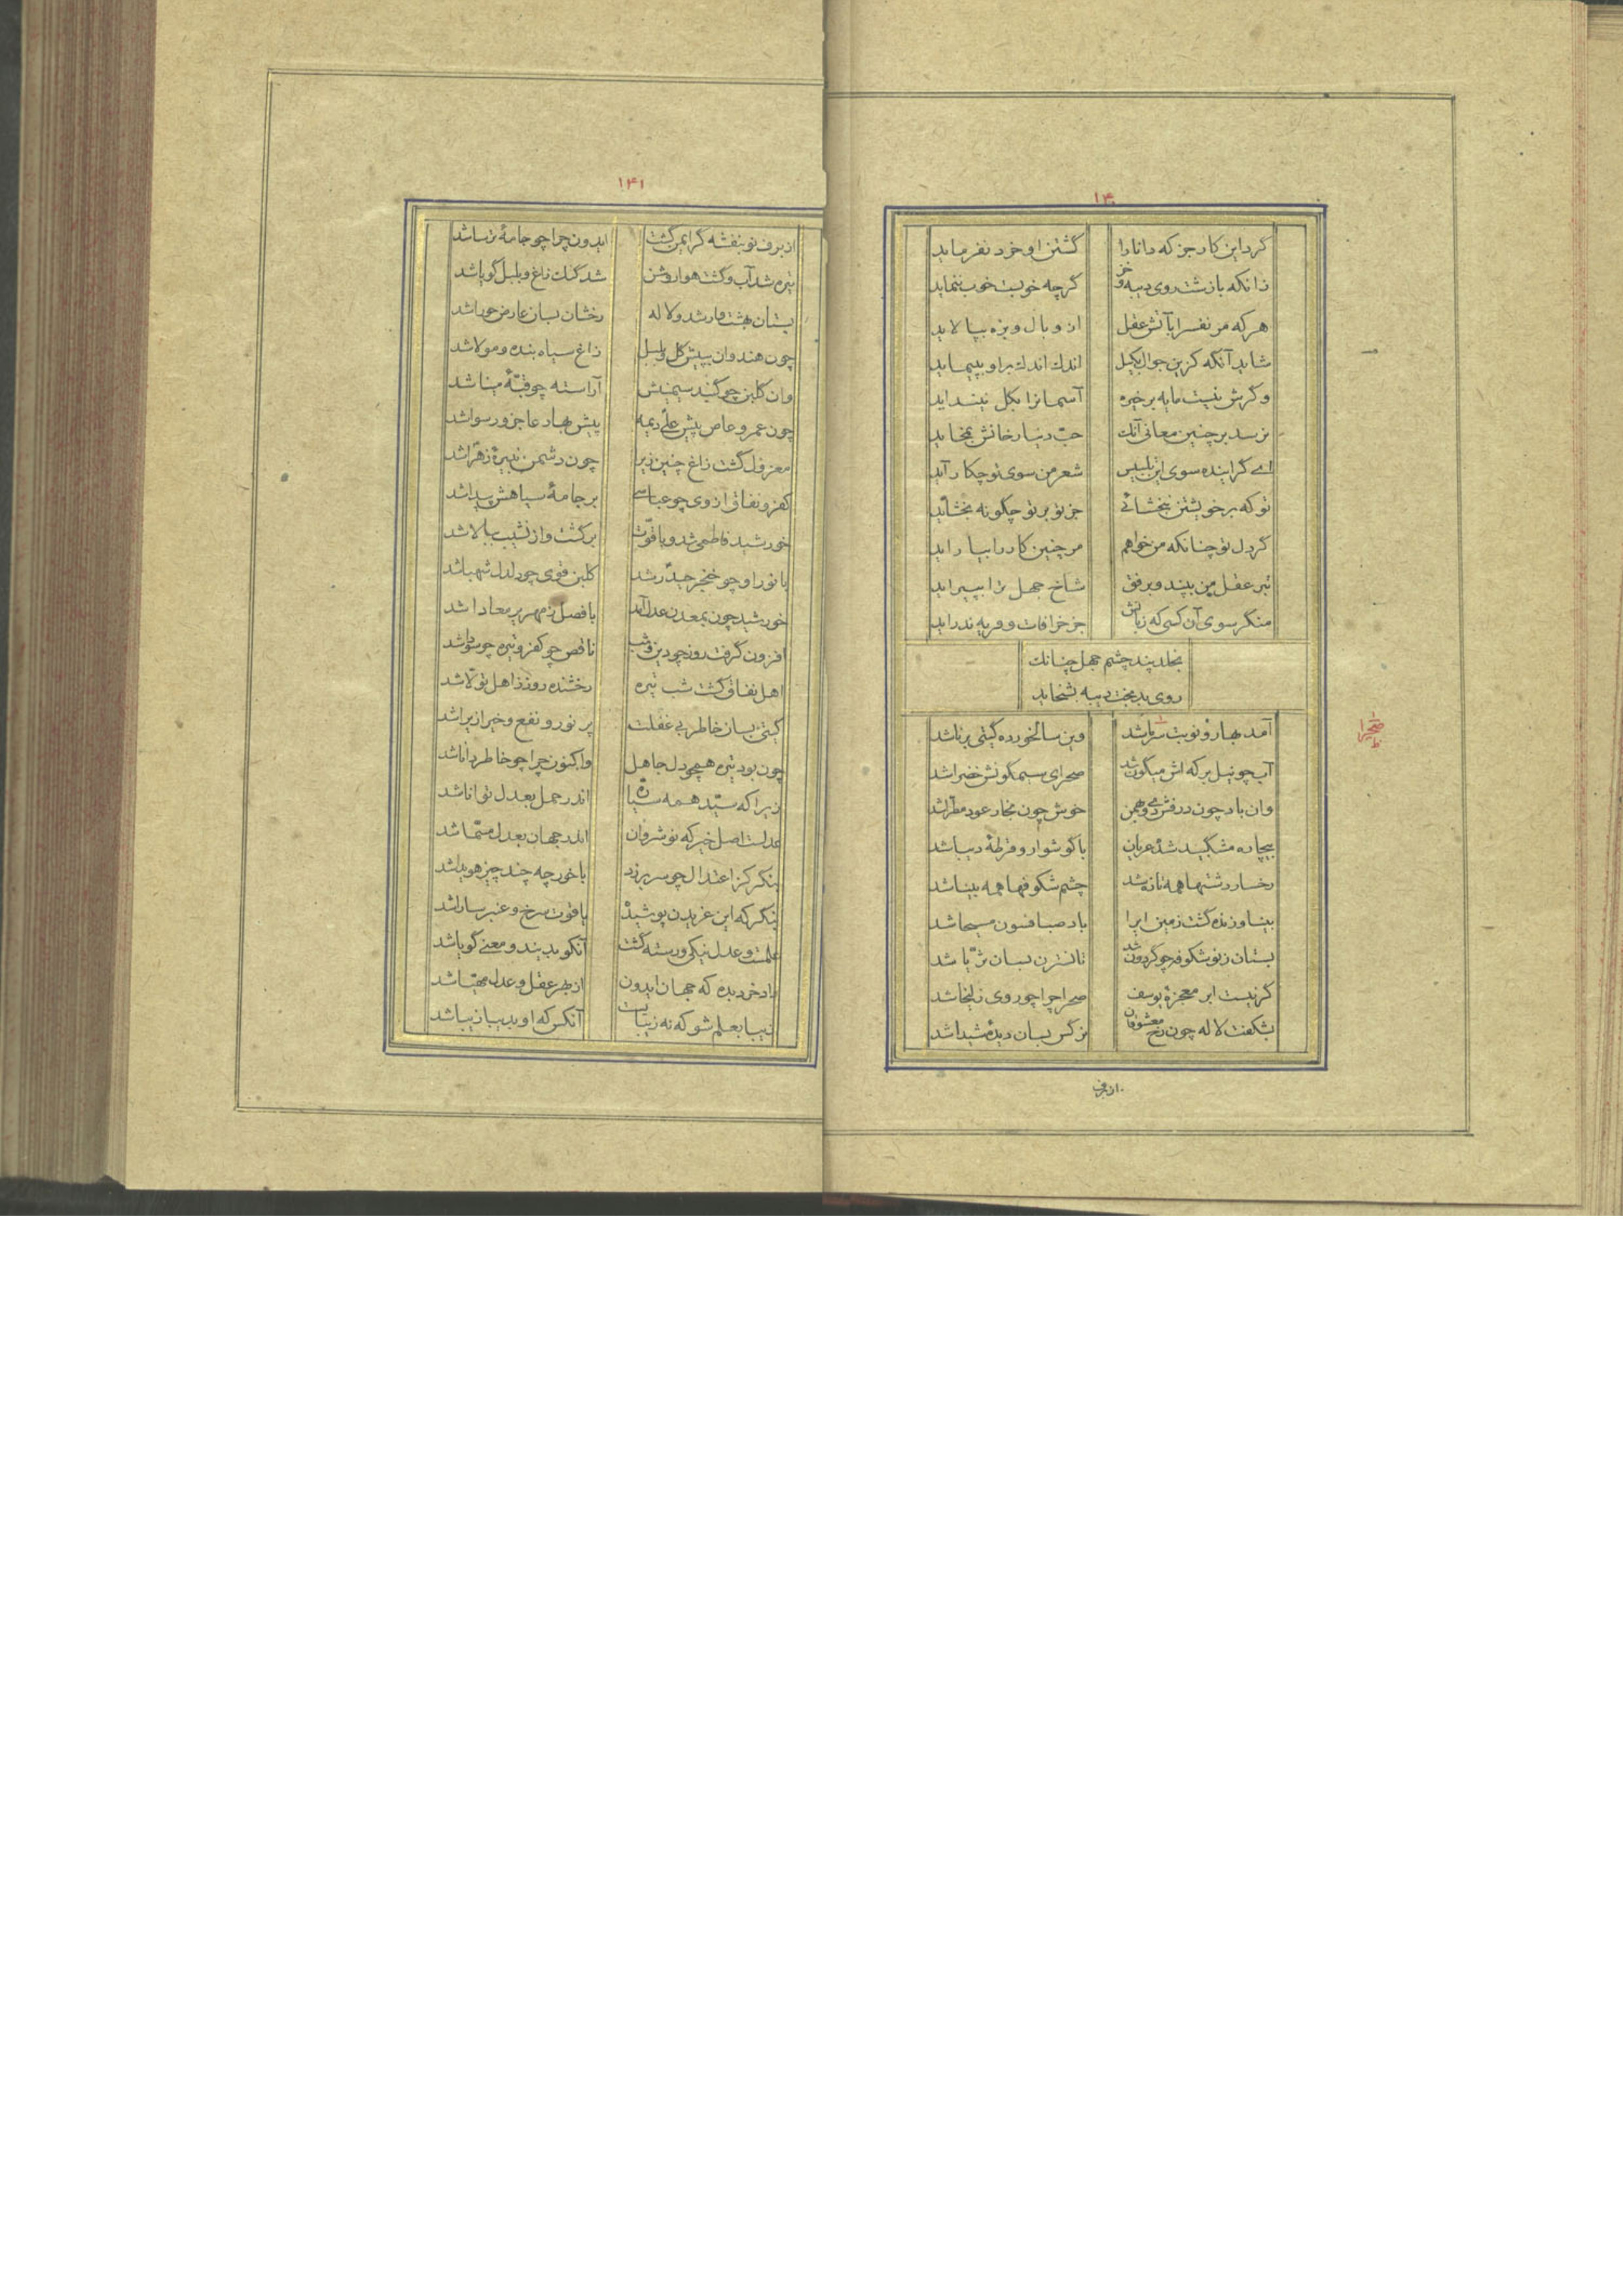 ۱۴۰
کرد این کار جز که دانا را گشتن او خرد نفرماید
زانکه با زشت روی دیبه و خز گرچه خوبست خوب ننماید
هر که مر نفس را بآتش عقل از وبال و بزه بپالاید
شاید آنکه کزین جوال بکیل اندک اندک براو بپیماید
وگرش نیست مایه بر خیره آسمانرا بگل نینداید
نرسد بر چنین معانی آنک حبّ دنیا رخانش بمخاید
ای گراینده سوی این تلبیس شعر من سوی تو چکار آید
تو که بر خویشتن نبخشائی جز تو بر تو چگونه بخشاید
گر دل تو چنانکه من خواهم مر چنین کار را بیاراید
تبر عقل من بپند و برفق شاخ جهل ترا بپیراید
منگر سوی آن کسی که زبانش جز خرافات و فریه ندراید
بخلد پند چشم جهل چنانک
روی بدبخت دیبه بشخاید
آمد بهار و نوبت سرما شد وین سالخورده گیتی برنا شد
آب چو نیل برکه اش میگون شد صحرای سیمگونش خضرا شد
وان باد چون درفش دی و بهمن خوش چون بخار عود مطرّا شد
بیچاره مشکبید شده عریان با گوشوار و قرطهٔ دیبا شد
رخسار دشتها همه تازه شد چشم شکوفها همه بینا شد
بینا و زنده گشت زمین ایرا باد صبا فسون مسیحا شد
بستان ز نو شکوفه چو گردون شد تا نسترن بسان ثریّا شد
گر نیست ابر معجزهٔ یوسف صحرا چرا چو روی زلیخا شد
بشکفت لاله چون رخ معشوقان نرگس بسان دیدهٔ شیدا شد
از برف
صحیرا
ظ
۱۴۱
از برف نو بنفشه گر ایمن گشت ایدون چرا چو جامهٔ ترسا شد
تیره شد آب و گشت هوا روشن شد گنگ زاغ و بلبل گویا شد
بستان بهشت وار شد و لاله رخشان بسان عارض حورا شد
چون هندوان بپیش گل و بلبل زاغ سیاه بنده و مولا شد
وان گلبن چو گنبد سیمینش آراسته چو قبّهٔ مینا شد
چون عمرو عاص پیش علی دیمه پیش بهار عاجز و رسوا شد
معزول گشت زاغ چنین زیرا چون دشمن نبیرهٔ زهرا شد
کفر و نفاق از وی چو عباسی بر جامهٔ سیاهش پیدا شد
خورشید فاطمی شد و با قوّت برگشت و از نشیب ببالا شد
با نور او چو خنجر حیدر شد گلبن قوی چو دلدل شهبا شد
خورشید چون بمعدن عدل آمد با فصل زمهریر معادا شد
افزون گرفت روز چو دین و شب ناقص چو کفر و تیره چو سودا شد
اهل نفاق گشت شب تیره رخشنده روز از اهل تولّا شد
گیتی بسان خاطر بی غفلت پر نور و نفع و خیر ازیرا شد
چون بود تیره همچو دل جاهل واکنون چرا چو خاطر دانا شد
زیرا که سیّد همه سیّاره اندر حمل بعدل توانا شد
عدلست اصل خیر که نوشروان اندر جهان بعدل مسمّا شد
بنگر کز اعتدال چو سر بر زد با خور چه چند چیز هویدا شد
بنگر که این غریژن پوشیده یاقوت سرخ و عنبر سارا شد
علمست و عدل نیکی و رسته گشت آنکو بدیند و معنی گویا شد
داد خرد بده که جهان ایدون از بهر عقل و عدل مهیّا شد
زیبا بعلم شو که نه زیباست آنکس که او بدیبا زیبا شد